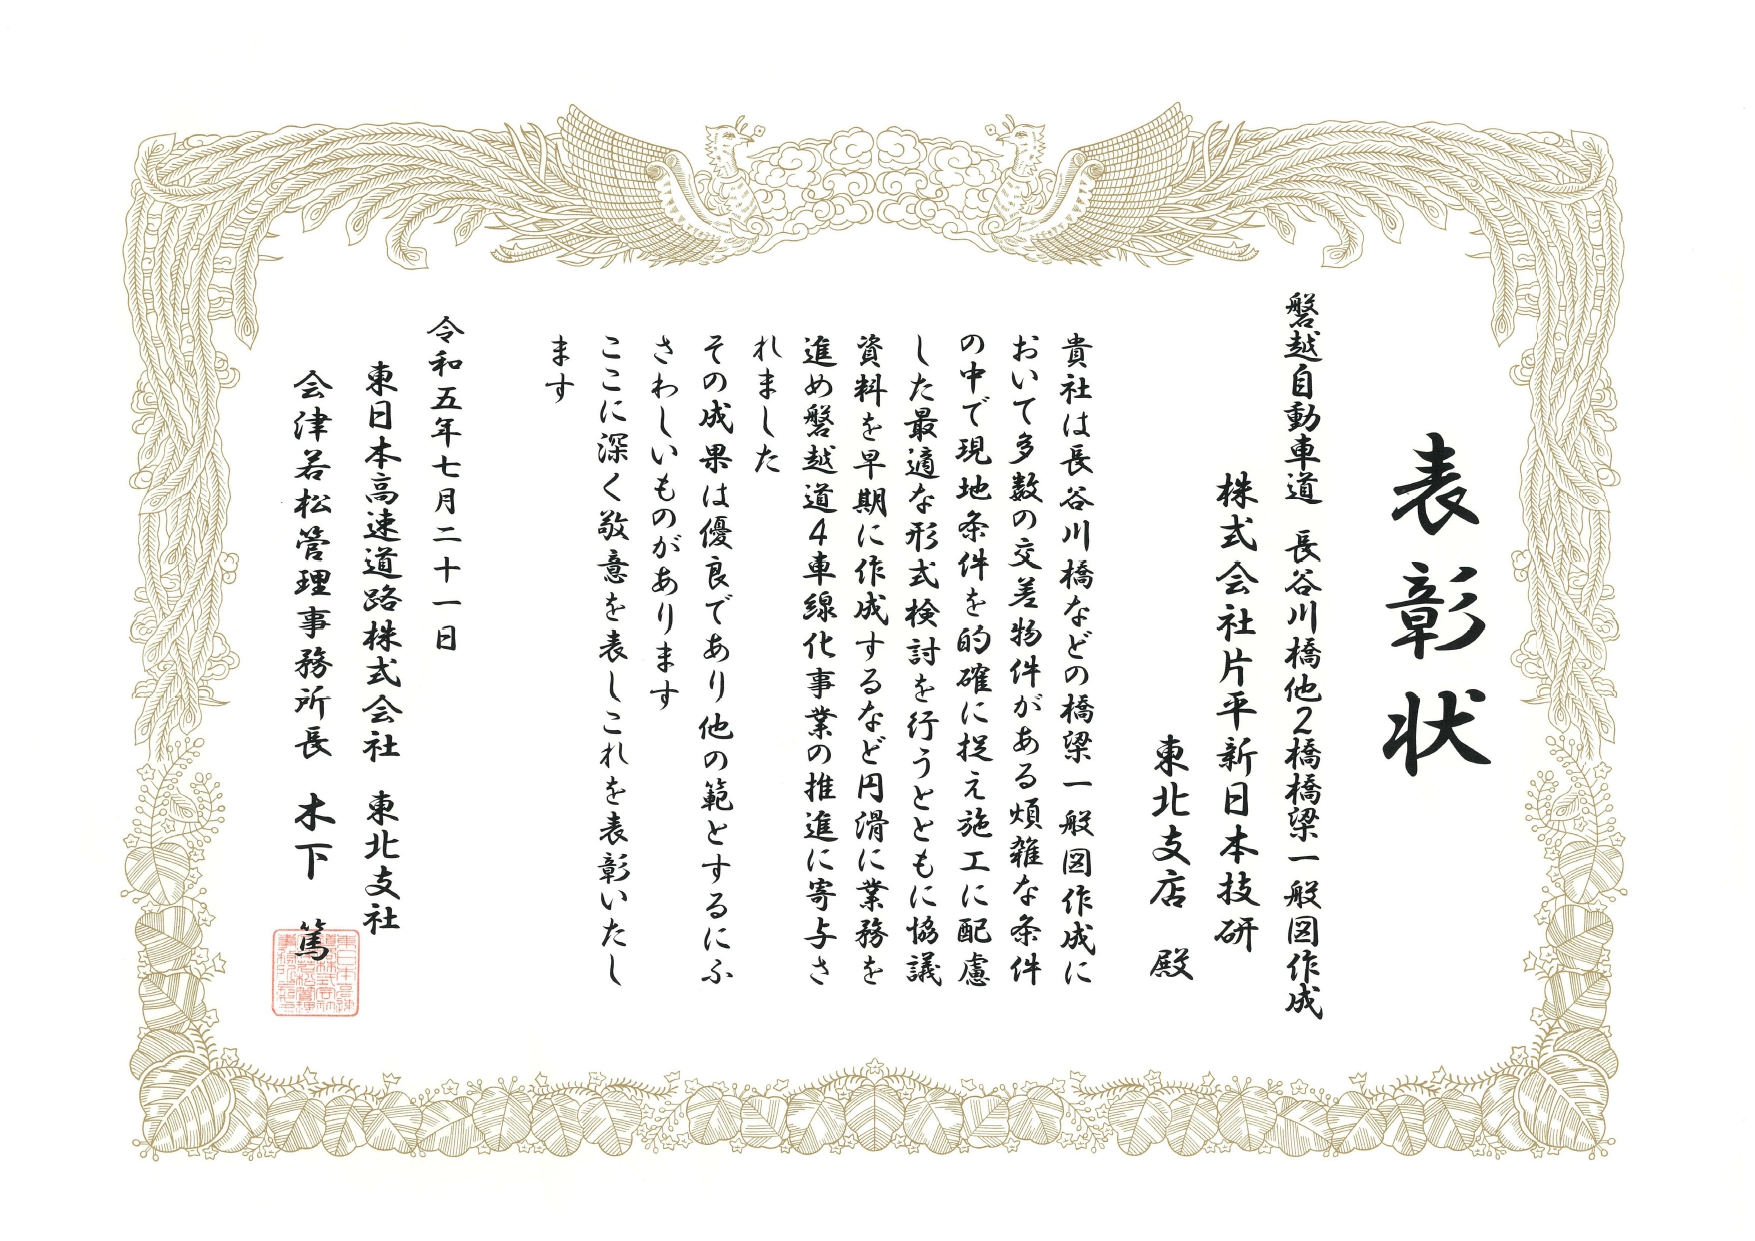 表彰状
磐越自動車道　長谷川橋他2橋橋梁一般図作成
株式会社片平新日本技研
東北支店　殿
貴社は長谷川橋などの橋梁一般図作成に
おいて多数の交差物件がある煩雑な条件
の中で現地条件を的確に捉え施工に配慮
した最適な形式検討を行うとともに協議
資料を早期に作成するなど円滑に業務を
進め磐越道4車線化事業の推進に寄与さ
れました
その成果は優良であり他の範とするにふ
さわしいものがあります
ここに深く敬意を表しこれを表彰いたし
ます
令和五年七月二十一日
東日本高速道路株式会社　東北支社
会津若松管理事務所長　木下　篤